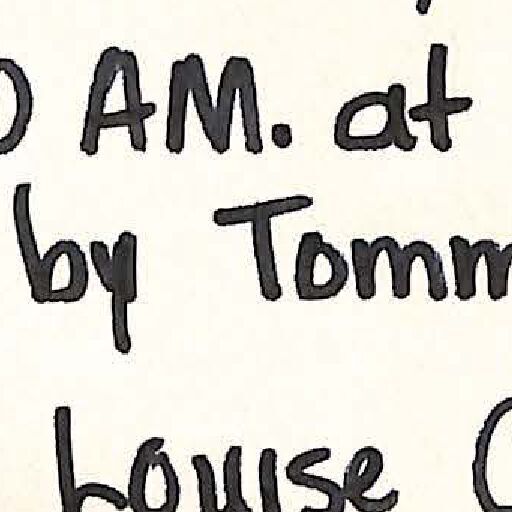 AM. at
by Tomm
Louise